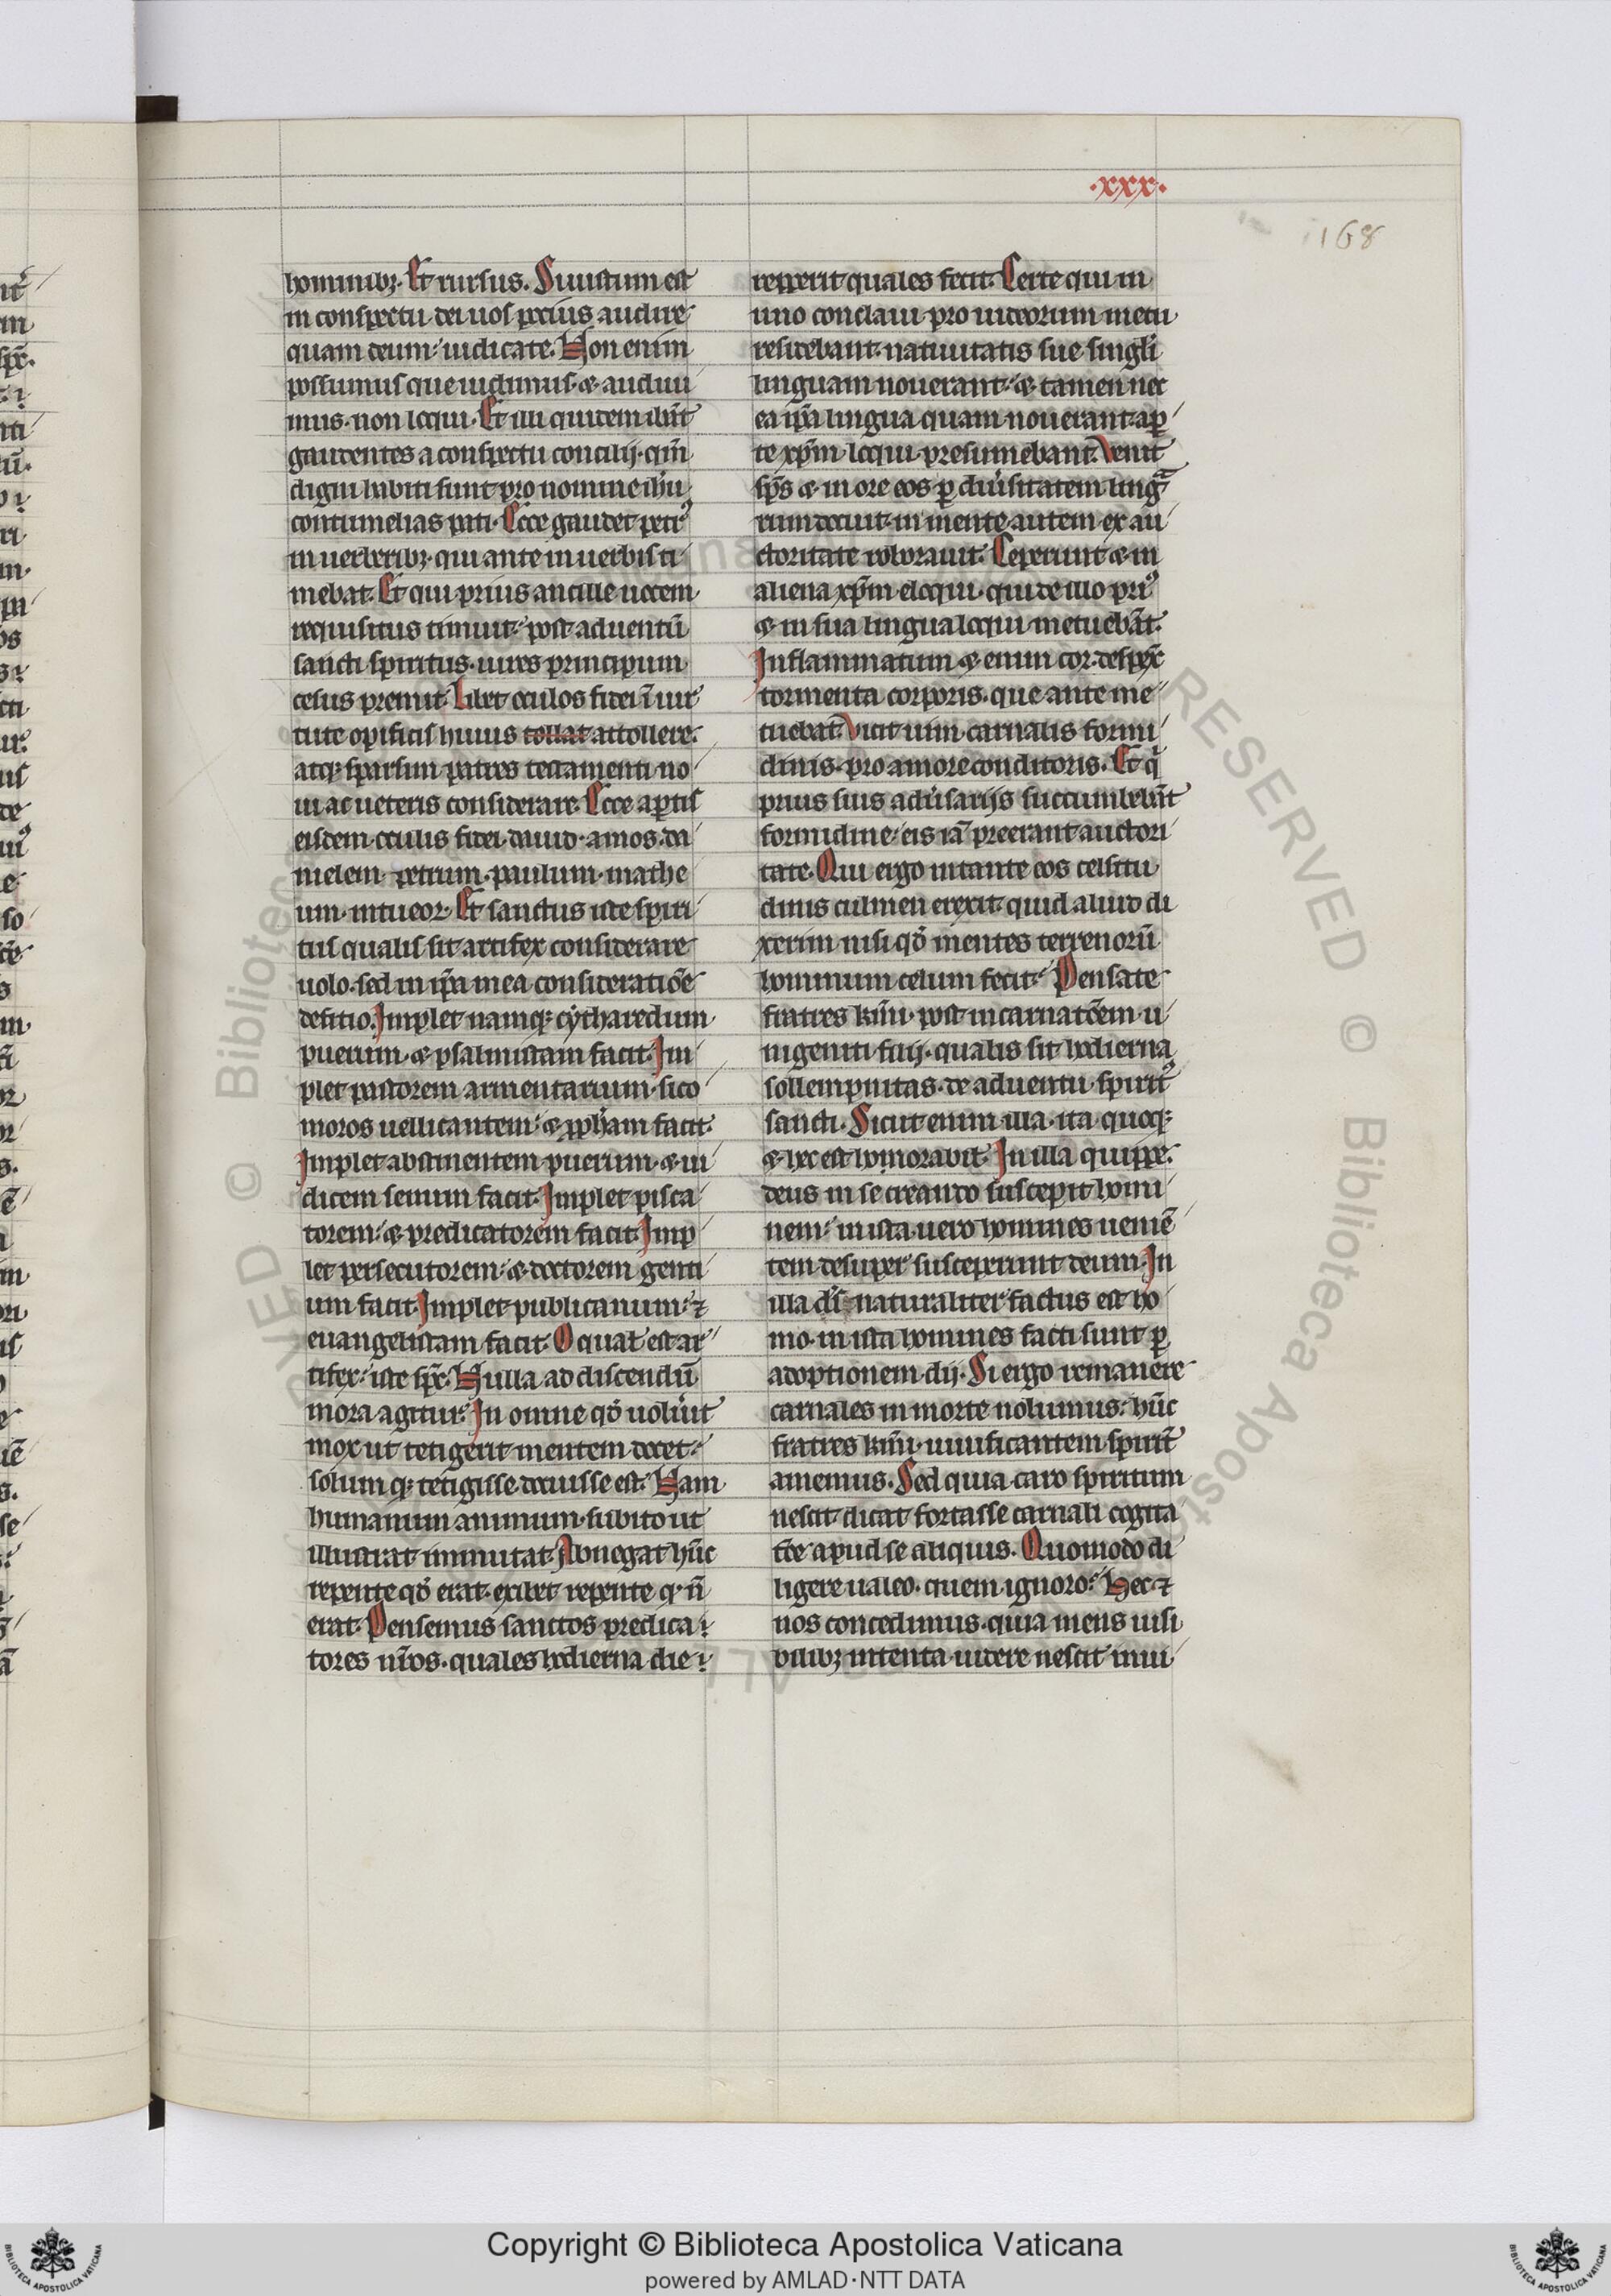 .xxx.
168
hominibꝫ. Et rursus. Si iustum est
in conspectu dei uos pocius audire
quam deum: iudicate. Non enim
possumus que uidimus. & audiui
mus. non loqui. Et illi quidem ibāt
gaudentes a conspectu concilij. qm̄
digni habiti sunt pro nomine ihu
contumelias pati. Ecce gaudet petrꝰ
in uerberibꝫ. qui ante in uerbis ti
mebat. Et qui prius ancille uocem
requisitus timuit: post aduentū
sancti spiritus. uires principum
cesus premit. Libet oculos fidei ī uir
tute opificis huius tollat attollere.
atqꝫ sparsim patres testamenti no
ui ac ueteris considerare. Ecce aptis
eisdem oculis fidei. dauid. amos. da
nielem. petrum. paulum. mathe
um. intueor. Et sanctus iste spiri
tus qualis sit artifex considerare
uolo. sed in ip̄a mea consideratiōe
deficio. Implet namqꝫ cytharedum
puerum. & psalmistam facit. Im
plet pastorem armentarium. sico
moros uellicantem: & ꝓph̄am facit.
Implet abstinentem puerum. & iu
dicem senum facit. Implet pisca
torem: & predicatorem facit. Imp
let persecutorem: & doctorem genti
um facit. Implet publicanum: ⁊
euangelistam facit. O qual̓ est ar
tifex: iste spc̄. Nulla ad discendū
mora agitur. In omne qd̓ uolu̓it
mox ut tetigerit mentem docet:
solum qꝫ tetigisse. docuisse est. Nam
humanum animum. subito ut
illustrat immutat. Abnegat hūc
repente qd̓ erat. exibet repente q. n̄
erat. Pensemus sanctos predica
tores nr̄os. quales hodierna die
repperit quales fecit. Certe qui in
uno conclaui pro iudeorum metu
residebant. natiuitatis sue singl̓i
linguam nouerant: & tamen nec
ea ip̄a lingua quam nouerant. aꝑ
te xp̄m loqui presumebant. Venit
sp̄s & in ore eos ꝑ diu̓sitatem lingᵃ
rum docuit. in mente autem ex au
ctoritate roborauit. Ceperunt & in
aliena xp̄m eloqui. qui de illo priꝰ
& in sua lingua loqui metuebāt.
Inflammatum & enim cor. despex̄
tormenta corporis. que ante me
tuebat. Vicit uim carnalis formi
dinis. pro amore conditoris. Et q̓
prius suis adu̓sarijs succumbebāt
formidine: eis iā preerant auctori
tate. Qui ergo in tante eos celsitu
dinis culmen erexit. quid aliud di
xerim nisi qd̓ mentes terrenorū
hominum celum fecit. Pensate
fratres kmi. post incarnatōem u
nigeniti filij. qualis sit hodierna
sollempnitas. de aduentu spiritꝰ
sancti. Sicut enim illa. ita quoqꝫ
& hec est honorabil̓. In illa quippe.
deus in se creando suscepit homi
nem: in ista uero homines ueniē
tem desuper susceperunt deum. In
illa ds̄ naturaliter factus est ho
mo. in ista homines facti sunt ꝑ
adoptionem dij. Si ergo remanere
carnales in morte nolumus: hūc
fratres kmi. uiuificantem spiritū
amemus. Sed quia caro spiritum
nescit. dicat fortasse carnali cogita
tōe apud se aliquis. Quomodo di
ligere ualeo. quem ignoro: Hec ⁊
nos concedimus. quia mens uisi
bilibꝫ intenta. uidere nescit inui
Copyright © Biblioteca Apostolica Vaticana
powered by AMLAD·NTT DATA